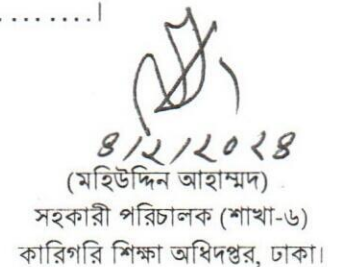 .........।
৪/২/২০২৪
(মহিউদ্দিন আহাম্মদ)
সহকারী পরিচালক (শাখা-৬)
কারিগরি শিক্ষা অধিদপ্তর, ঢাকা।